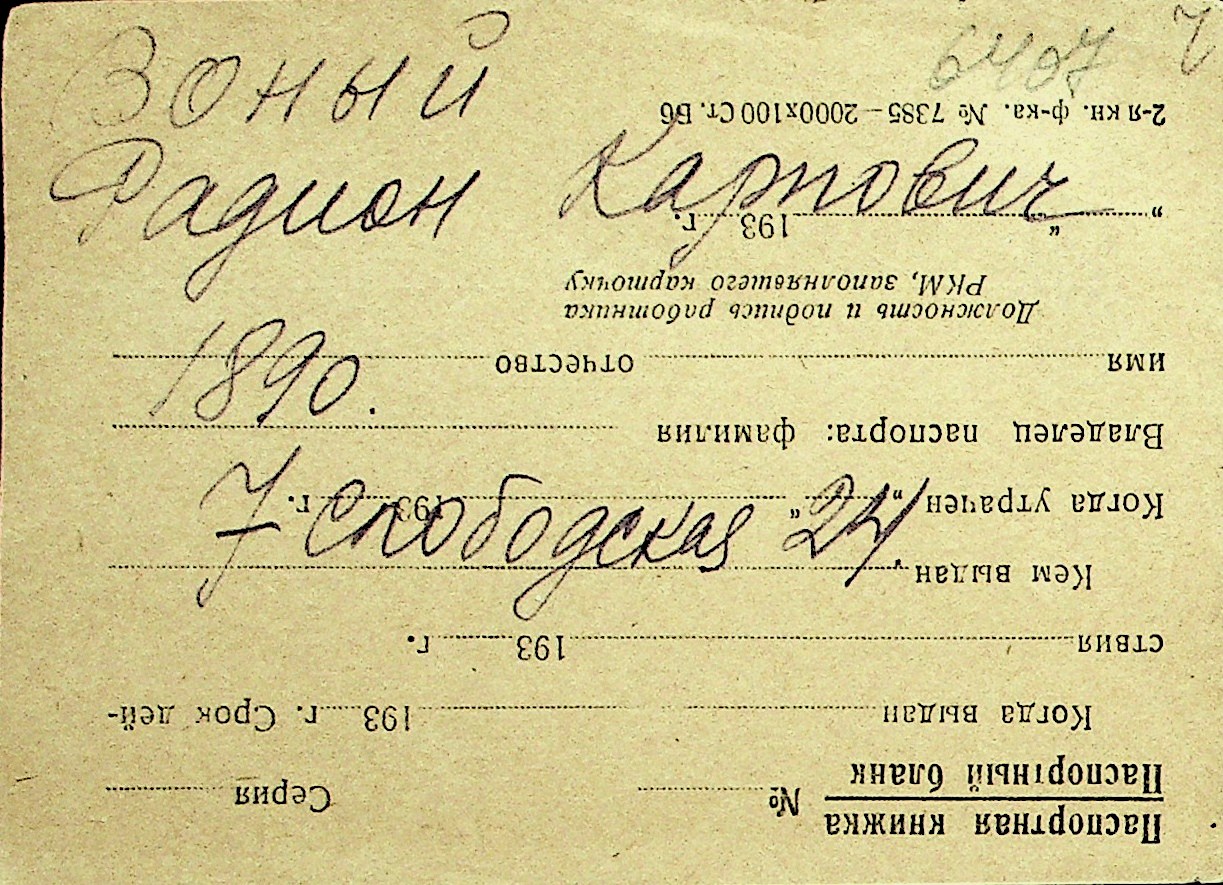 Зоный
6407
Радион Карпович
1890.
7 Слободская 24.
Паспортная книжка
Паспортный бланк № Серия
Когда выдан 193 г. Срок дей-
ствия 193 г.
Кем выдан
Когда утрачен „ “ 193 г.
Владелец паспорта: фамилия
имя отчество
Должность и подпись работника
РКМ, заполнявшего карточку
„ “ 193 г.
2-я кн. ф-ка. № 7385—2000х100 Ст. Б6